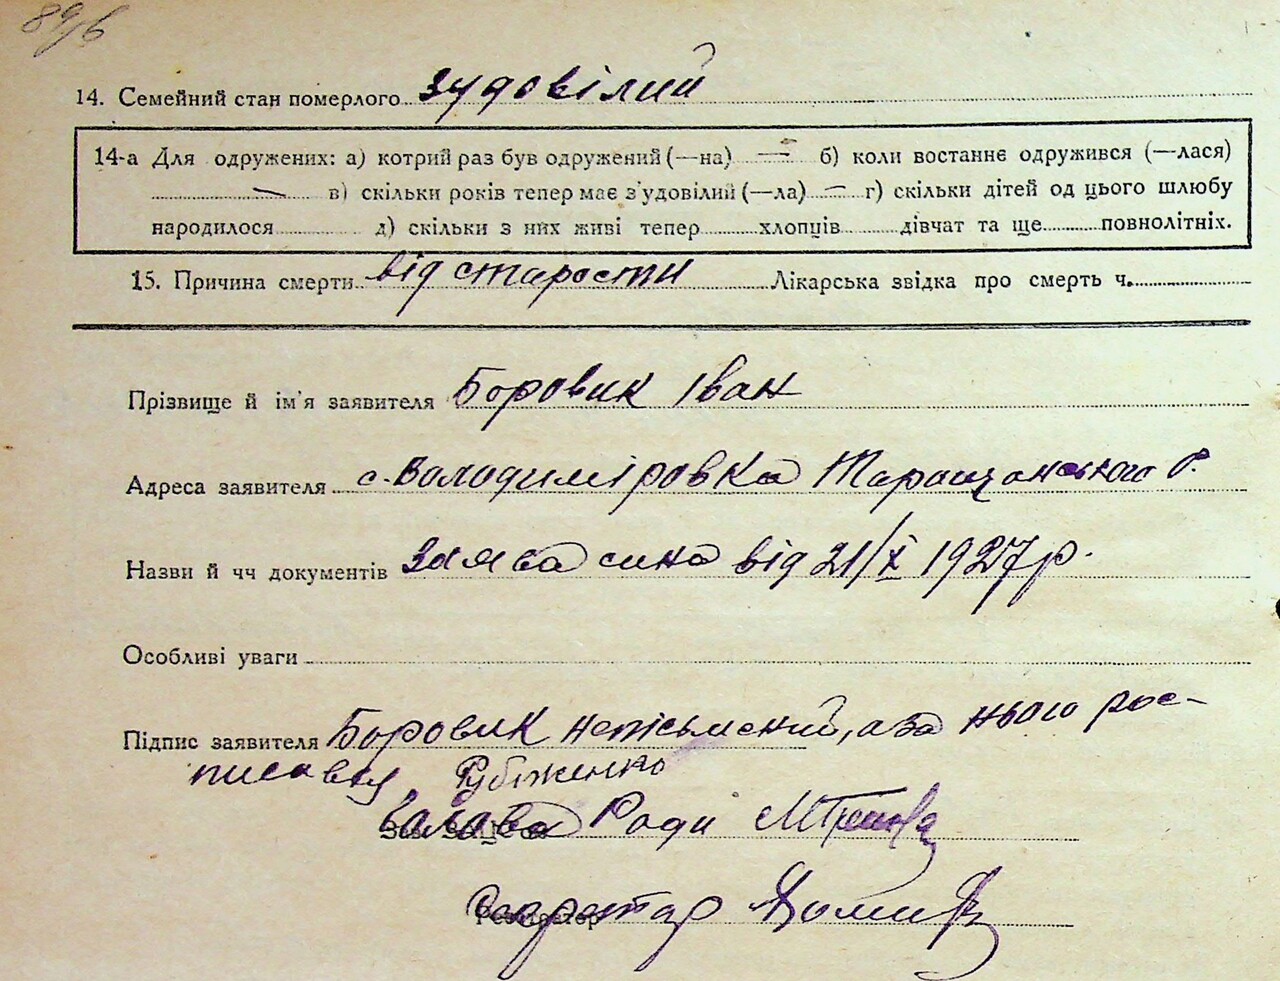 89/6
14. Семейний стан померлого зудовілий
14-а Для одружених: а) котрий раз був одружений (—на) — б) коли востаннє одружився (—лася)
— в) скільки років тепер має з'удовілий (—ла) — г) скільки дітей од цього шлюбу
народилося д) скільки з них живі тепер хлопців дівчат та ще повнолітніх.
15. Причина смерти від старости Лікарська звідка про смерть ч.
Прізвище й ім'я заявителя Боровик Іван
Адреса заявителя с. Володиміровка Таращанського р.
Назви й чч документів заява сина від 21/X 1927 р.
Особливі уваги
Підпис заявителя Боровик неписьмений, а за нього рос-
писався Рубіженко
Голова Ради
Секретар